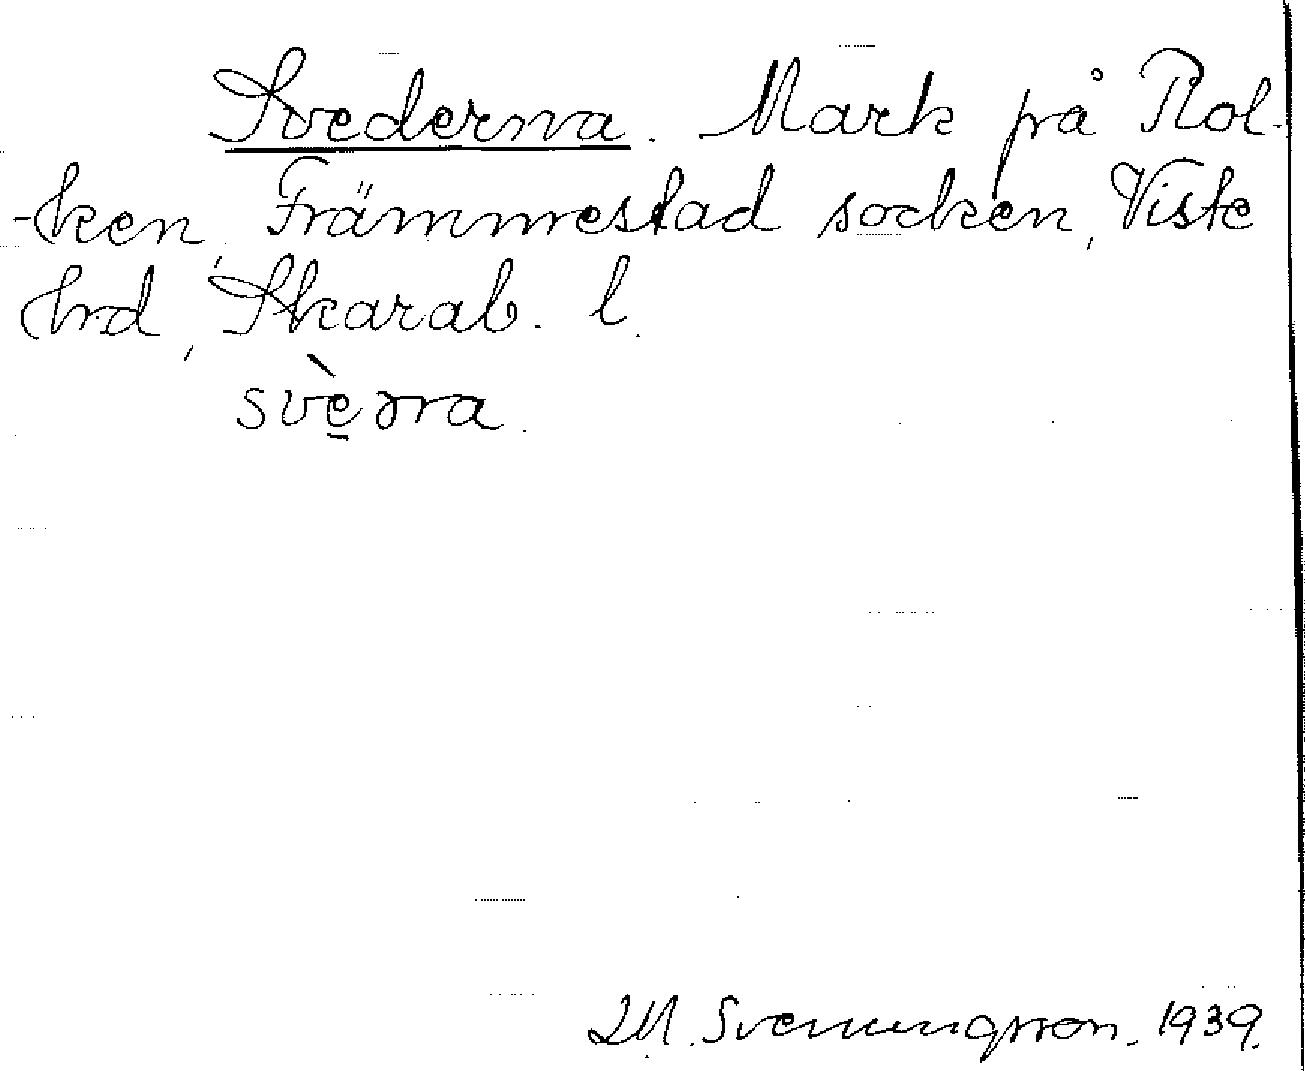 Svederna. Mark på Rol-
-ken, Främmestad socken, Viste
hrd, Skarab. l.
svèrra.
M. Svenungsson. 1939.